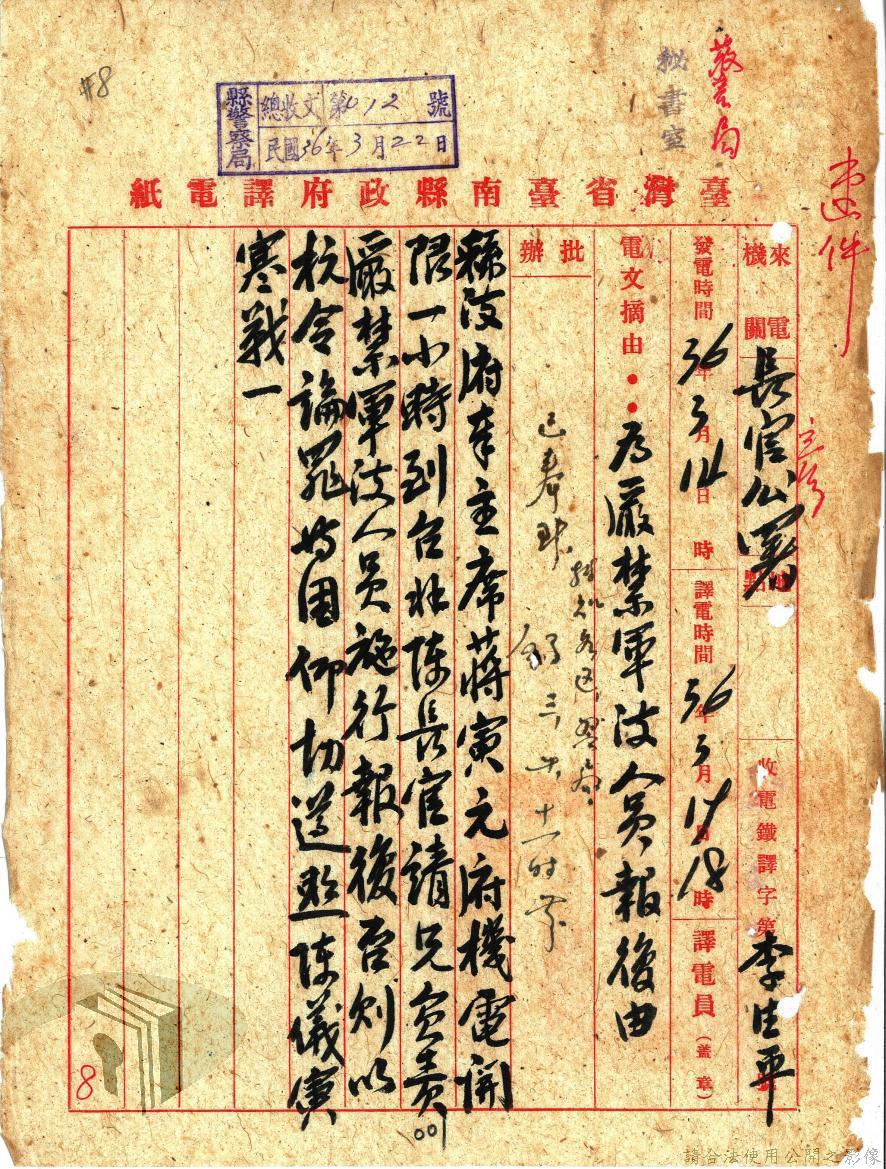 #8
縣警察局
總收文 第012號
民國36年3月22日
秘書室
警局
速件
臺灣省臺南縣政府譯電紙
來電機關 長官公署
地點
收電鐵譯字第 號
李生平
發電時間 36年3月14日 時
譯電時間 36年3月17日18時
譯電員（蓋章）
電文摘由：為嚴禁軍政人員報復由
批辦
縣政府奉主席蔣寅元府機電開
限一小時到台北陳長官請兄負責
嚴禁軍政人員施行報復否則以
抗令論罪等因仰切遵照陳儀寅
寒戰一
001
8
請合法使用公開之影像